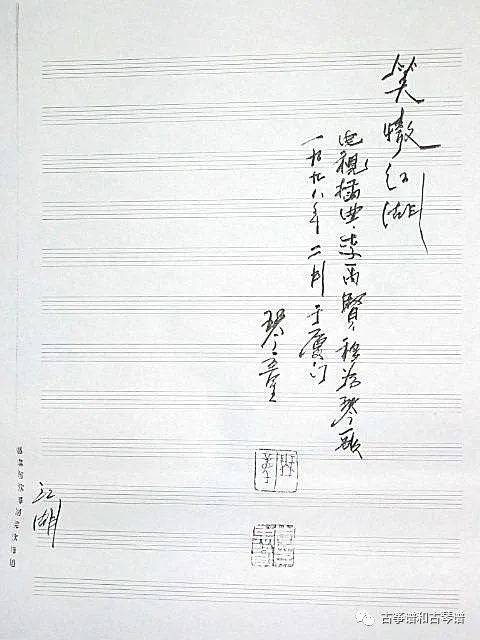 笑傲江湖
电视插曲·李禹贤移为琴歌
一九九八年二月于厦门
琴童
江湖
古筝谱和古琴谱